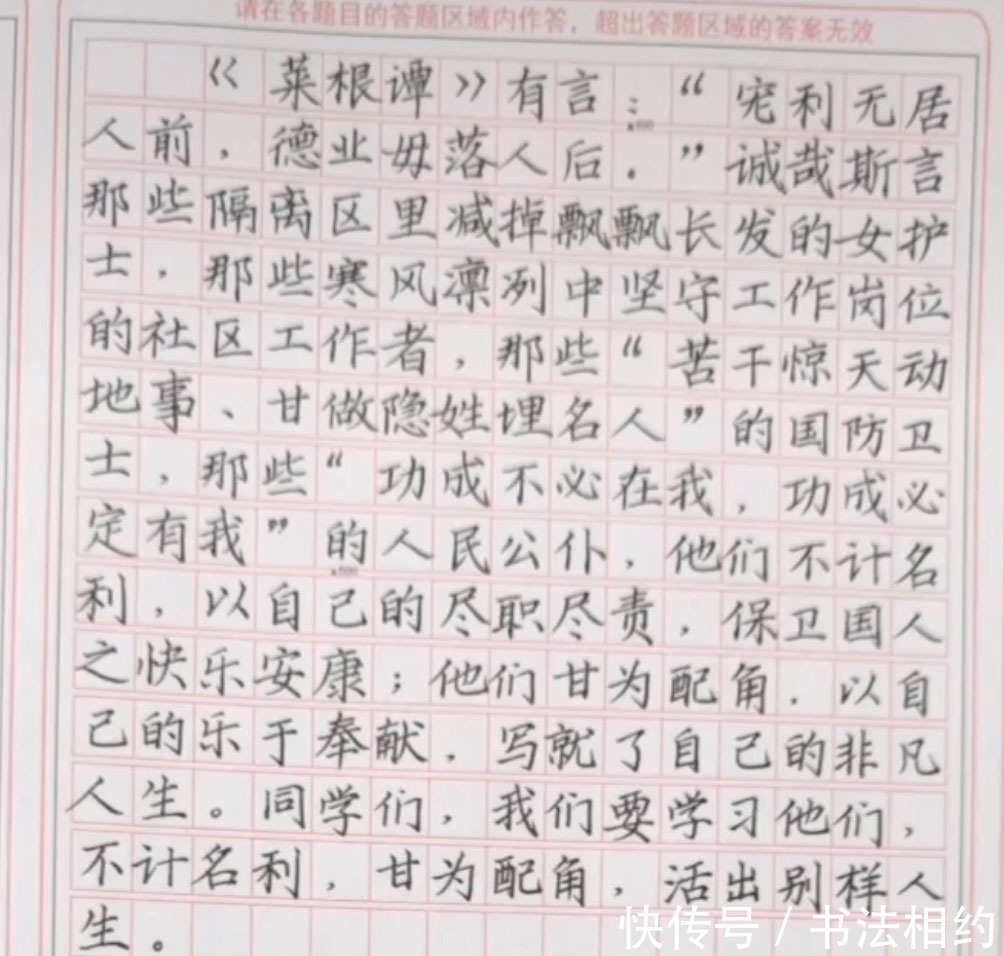 请在各题目的答题区域内作答，超出答题区域的答案无效
《菜根谭》有言：“宠利无居
人前，德业毋落人后．”诚哉斯言
那些隔离区里减掉飘飘长发的女护
士，那些寒风凛冽中坚守工作岗位
的社区工作者，那些“苦干惊天动
地事、甘做隐姓埋名人”的国防卫
士，那些“功成不必在我，功成必
定有我”的人民公仆，他们不计名
利，以自己的尽职尽责，保卫国人
之快乐安康；他们甘为配角．以自
己的乐于奉献，写就了自己的非凡
人生。同学们，我们要学习他们，
不计名利，甘为配角，活出别样人
生。
快传号 / 书法相约